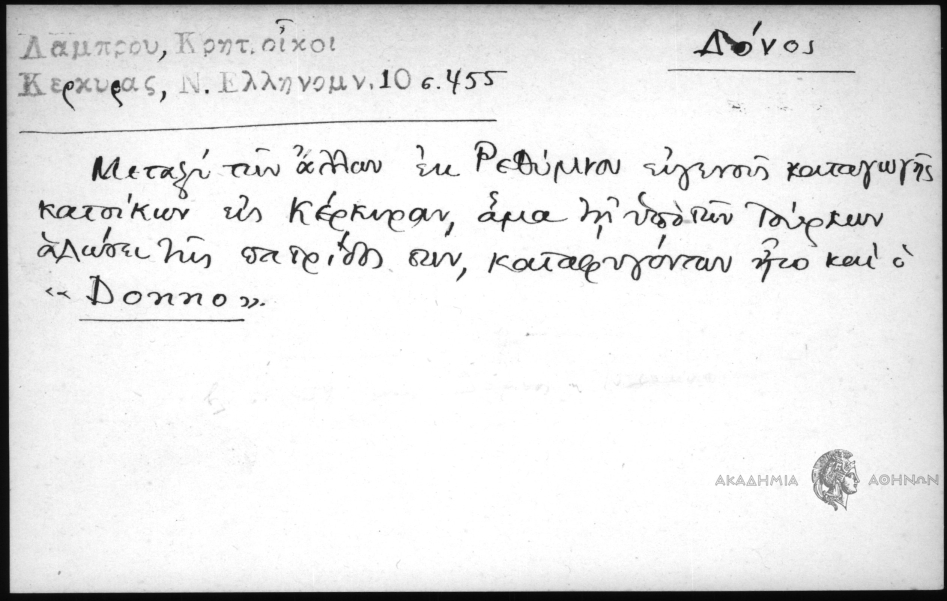 Λάμπρου, Κρητ. οἶκοι
Δόνος
Κερκυρας, Ν. Ελληνομν. 10 σ. 455
Μεταξύ τῶν ἄλλων ἐκ Ρεθύμνου εὐγενοῦς καταγωγῆς
κατοίκων εἰς Κέρκυραν, ἅμα τῇ ὑπὸ τῶν Τούρκων
ἁλώσει τῆς πατρίδος των, καταφυγόντων ἦτο καὶ ὁ
«Donno».
ΑΚΑΔΗΜΙΑ ΑΘΗΝΩΝ